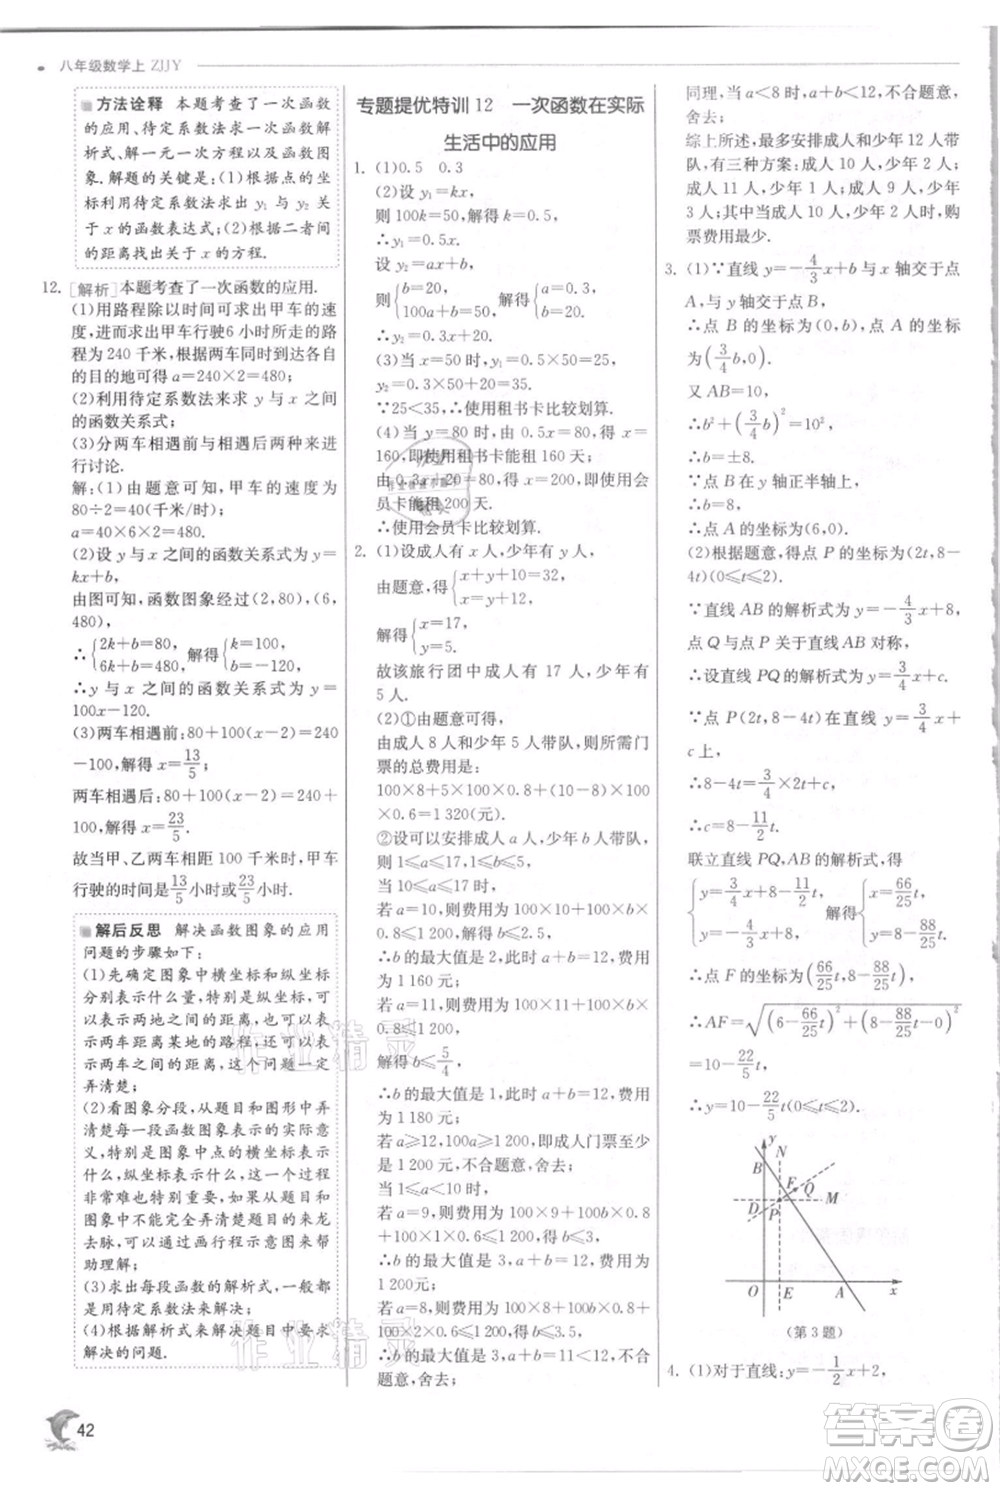 八年级数学上 ZJJY
方法诠释 本题考查了一次函数
的应用、待定系数法求一次函数解
析式、解一元一次方程以及函数图
象.解题的关键是:(1)根据点的坐
标利用待定系数法求出 y₁ 与 y₂ 关
于 x 的函数表达式;(2)根据二者间
的距离找出关于 x 的方程.
12. [解析]本题考查了一次函数的应用.
(1)用路程除以时间可求出甲车的速
度,进而求出甲车行驶6小时所走的路
程为 240 千米,根据两车同时到达各自
的目的地可得 a=240×2=480;
(2)利用待定系数法来求 y 与 x 之间
的函数关系式;
(3)分两车相遇前与相遇后两种来
进行讨论.
解:(1)由题意可知,甲车的速度为
80÷2=40(千米/时);
a=40×6×2=480;
(2)设 y 与 x 之间的函数关系式为 y=
kx+b,
由图可知,函数图象经过(2,80),(6,
480),
∴{2k+b=80, 6k+b=480, 解得{k=100, b=-120.
∴y 与 x 之间的函数关系式为 y=
100x-120.
(3)两车相遇前:80+100(x-2)=240
-100,解得 x=13/5;
两车相遇后:80+100(x-2)=240+
100,解得 x=23/5.
故当甲、乙两车相距 100 千米时,甲车
行驶的时间是13/5小时或23/5小时.
解后反思 解决函数图象的应用
问题的步骤如下:
(1)先确定图象中横坐标和纵坐标
分别表示什么量,特别是纵坐标,可
以表示两地之间的距离,可以表示
两车距离某地的路程,可以表示两
车之间的距离等等,因此,一定要
弄清楚;
(2)看图象分段,从图象和图形中弄
清楚每一段函数图象表示的实际意
义,特别是图象中的点的横坐标表示
什么,纵坐标表示什么,这些坐标
非常难也特别重要,特别是实际问题
中,完全弄清楚图象的来龙
去脉,可以通过画行程示意图来帮
助理解;
(3)求出每段函数的解析式,主要利
用待定系数法来解决;
(4)根据解析式来解决题目要求
解决的问题.
42
专题提优特训 12 一次函数在实际
生活中的应用
1. (1)0.5 0.3
(2)设 y₁=kx,
则 100k=50,解得 k=0.5,
∴y₁=0.5x.
设 y₂=ax+b,
则{b=20, 100a+b=50, 解得{a=0.3, b=20.
∴y₂=0.3x+20.
(3)当 x=50 时,y₁=0.5×50=25,
y₂=0.3×50+20=35.
∵25<35,∴使用租书卡比较划算.
(4)当 y=80 时,由 0.5x=80 得 x=
160,即使用租书卡能租 160 天;
由 0.3x+20=80 得 x=200,即使用会
员卡能租 200 天.
∴使用会员卡比较划算.
2. (1)设成人有 x 人,少年有 y 人.
由题意,得{x+y+10=32, x=y+12,
解得{x=17, y=5.
故该旅行团中成人有 17 人,少年有
5 人.
(2)①由题意可得,
由成人 8 人和少年 5 人带队,则所需门
票的总费用是:
100×8+5×100×0.8+(10-8)×100
×0.6=1 320(元).
②设可以安排成人 a 人,少年 b 人带队,
则 1≤a≤17,1≤b≤5.
当 10≤a≤17 时,
若 a=10,则费用为 100×10+100×b×
0.8≤1 200,解得 b≤5/2,
∴b 的最大值是 2,此时 a+b=12,费用
为 1 160 元;
若 a=11,则费用为 100×11+100×b×
0.8≤1 200,
解得 b≤5/4,
∴b 的最大值是 1,此时 a+b=12,费用
为 1 180 元;
若 a≥12,100a≥1 200,即成人门票至少
是 1 200 元,不合题意,舍去;
当 1≤a<10 时,
若 a=9,则费用为 100×9+100b×0.8+
100×1×0.6≤1 200,解得 b≤3,
∴b 的最大值是 3,a+b=12,费用为
1 200元;
若 a=8,则费用为 100×8+100b×0.8+
100×2×0.6≤1 200,解得 b≤7/2,
∴b 的最大值是 3,a+b=11<12,不合题
意,舍去;
同理,当 a<8 时,a+b<12,不合题意,
舍去;
综上所述,最多安排成人和少年 12 人带
队,有三种方案:成人 10 人,少年 2 人;
成人 11 人,少年 1 人;成人 9 人,少年
3 人;其中当成人 10 人,少年 2 人时,购
票费用最少.
3. (1)∵直线 y=-4/3x+b 与 x 轴交于点
A,与 y 轴交于点 B,
∴点 B 的坐标为(0,b),点 A 的坐标
为(3/4b,0).
又 AB=10,
∴b²+(3/4b)²=10²,
∴b=±8.
∵点 B 在 y 轴正半轴上,
∴b=8,
∴点 A 的坐标为(6,0).
(2)根据题意,得点 P 的坐标为(2t,8-
4t)(0≤t≤2).
∵直线 AB 的解析式为 y=-4/3x+8,
点 Q 与点 P 关于直线 AB 对称,
∴设直线 PQ 的解析式为 y=3/4x+c.
∵点 P(2t,8-4t)在直线 y=3/4x+
c 上,
∴8-4t=3/4×2t+c,
∴c=8-11/2t.
联立直线 PQ,AB 的解析式,得
{y=3/4x+8-11/2t, y=-4/3x+8, 解得{x=66/25t, y=8-88/25t.
∴点 F 的坐标为(66/25t,8-88/25t),
∴AF=√((6-66/25t)²+(8-88/25t-0)²)
=10-22/5t,
∴y=10-22/5t(0≤t≤2).
y
N
B
F
Q
D
P
M
O
E
A
x
(第 3 题)
4. (1)对于直线:y=-1/2x+2,
作业精灵
作业精灵
答案圈
MXQE.COM